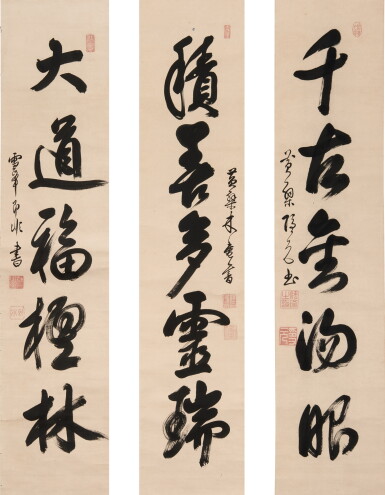 千古金湯眼
黄檗隱元書
積善多靈瑞
黄檗木菴書
大道福檀林
雪峯即非書